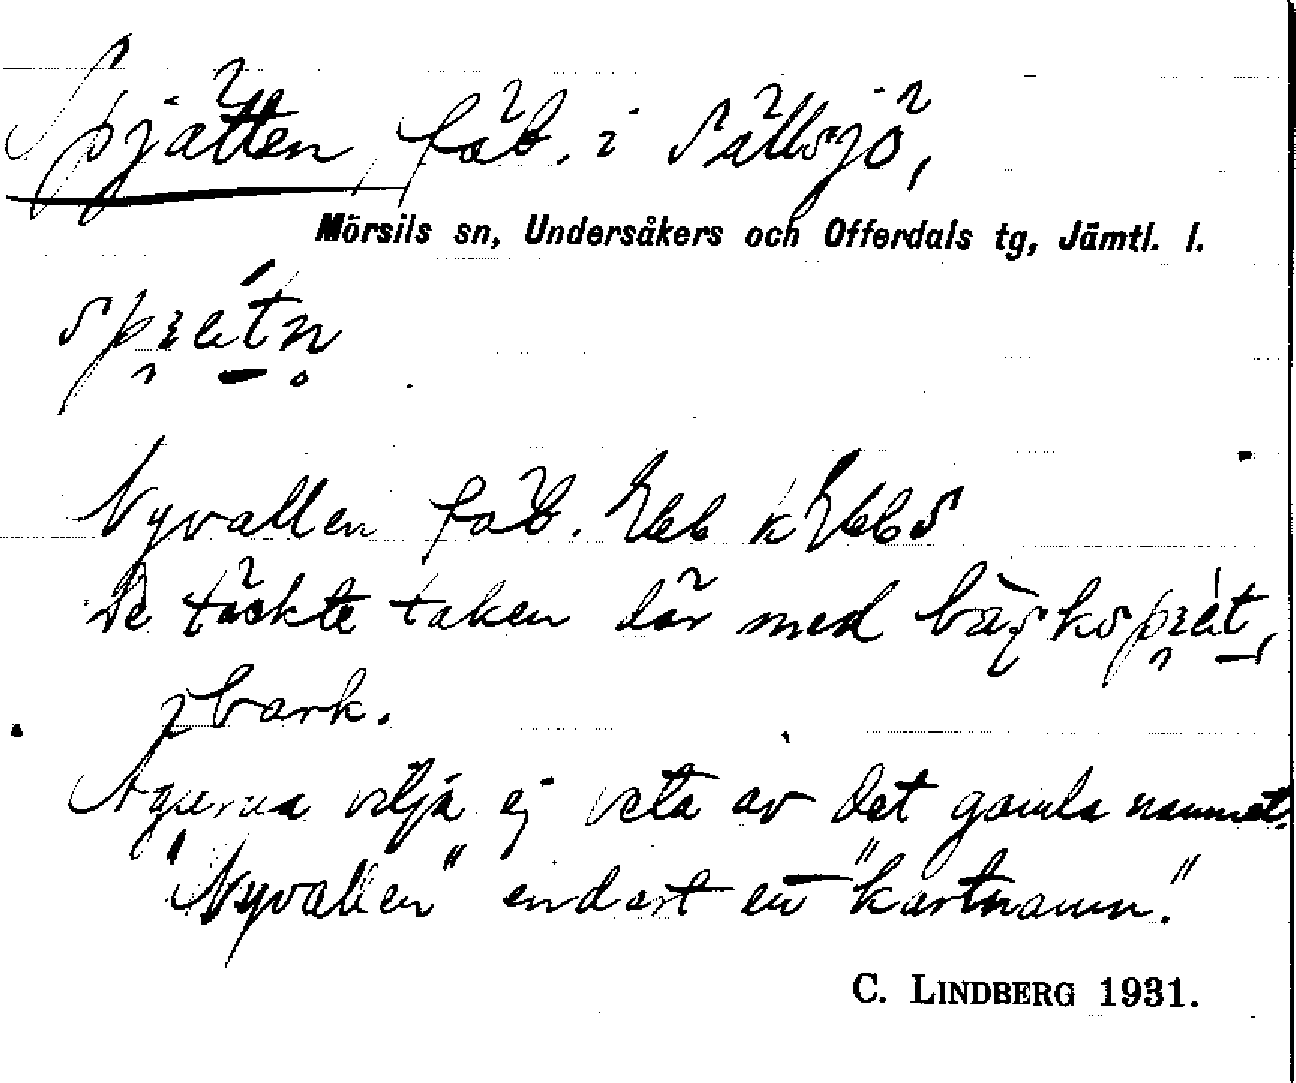 Spjätten, fäb. i Sällsjö,
Mörsils sn, Undersåkers och Offerdals tg, Jämtl. l.
Nyvallen fäb. Ebl kEbbS
De täckte taken där med
bark.
Ägarna vilja ej veta av det gamla namnet.
"Nyvallen" endast ett "kartnamn."
C. LINDBERG 1931.